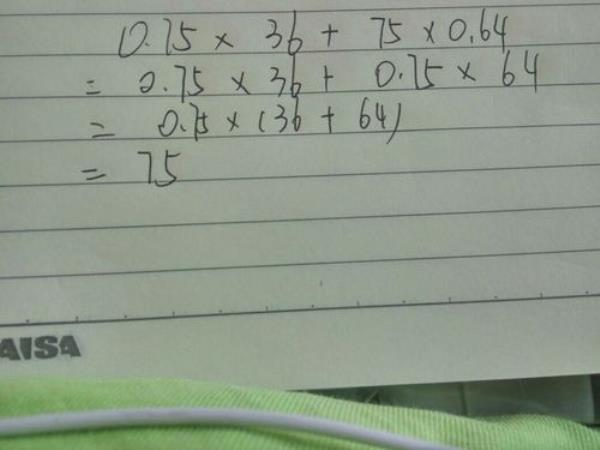 0.75 × 36 + 75 × 0.64
= 0.75 × 36 + 0.75 × 64
= 0.75 × (36 + 64)
= 75
AISA